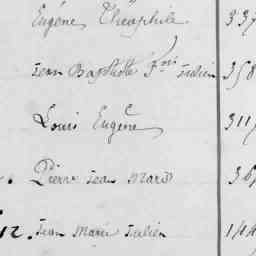 Eugène Théophile 337
Jean Baptiste F.ois Julien 358
Louis Eugène 311
Pierre Jean Marie 36
12. Jean Marie Julien 144